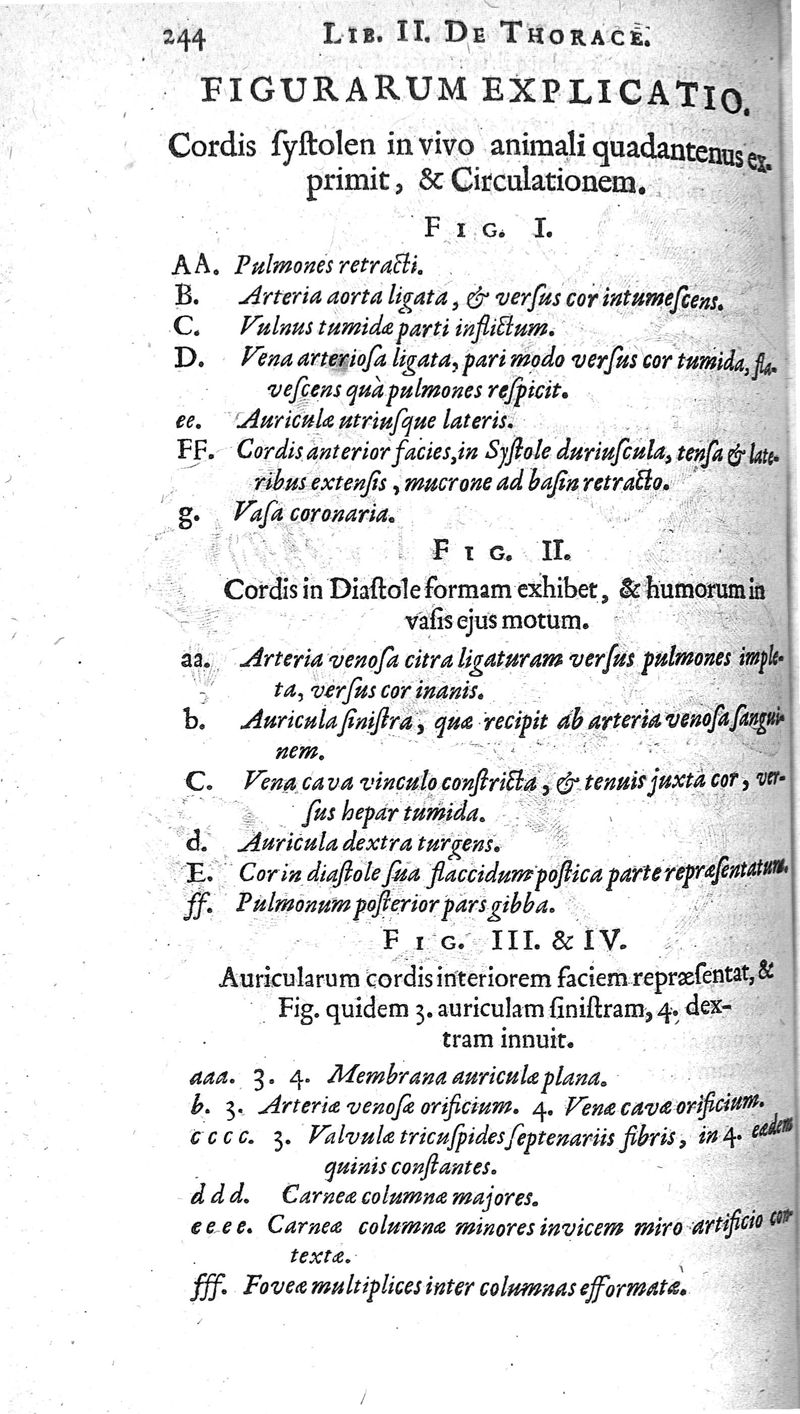 244 LIB. II. DE THORACE.
FIGURARUM EXPLICATIO.
Cordis ſyſtolen in vivo animali quadantenus ex-
primit, & Circulationem.
FIG. I.
AA. Pulmones retracti.
B. Arteria aorta ligata, & verſus cor intumeſcens.
C. Vulnus tumidæ parti inflictum.
D. Vena arterioſa ligata, pari modo verſus cor tumida, fla-
veſcens quà pulmones reſpicit.
ee. Auriculæ utriuſque lateris.
FF. Cordis anterior facies, in Syſtole duriuſcula, tenſa & late-
ribus extenſis, mucrone ad baſin retracto.
g. Vaſa coronaria.
FIG. II.
Cordis in Diaſtole formam exhibet, & humorum in
vaſis ejus motum.
aa. Arteria venoſa citra ligaturam verſus pulmones imple-
ta, verſus cor inanis.
b. Auricula ſiniſtra, quæ recipit ab arteria venoſa ſangui-
nem.
C. Vena cava vinculo conſtricta, & tenuis juxta cor, ver-
ſus hepar tumida.
d. Auricula dextra turgens.
E. Cor in diaſtole ſua flaccidum poſtica parte repræſentatum.
ff. Pulmonum poſterior pars gibba.
FIG. III. & IV.
Auricularum cordis interiorem faciem repræſentat, &
Fig. quidem 3. auriculam ſiniſtram, 4. dex-
tram innuit.
aaa. 3. 4. Membrana auriculæ plana.
b. 3. Arteriæ venoſæ orificium. 4. Venæ cavæ orificium.
cccc. 3. Valvulæ tricuſpides ſeptenariis fibris, in 4. eædem
quinis conſtantes.
ddd. Carneæ columnæ majores.
eeee. Carneæ columnæ minores invicem miro artificio con-
textæ.
fff. Foveæ multiplices inter columnas efformatæ.